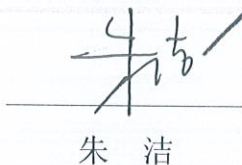 朱洁
朱 洁